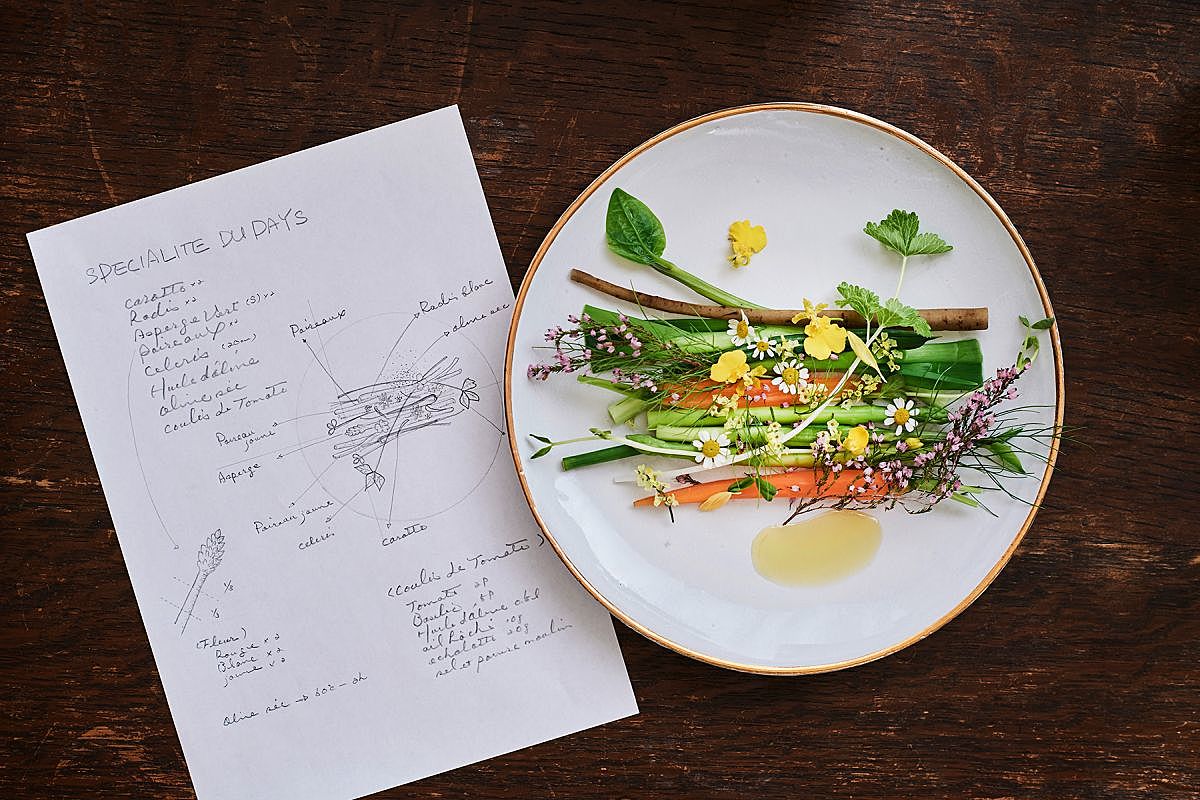 SPECIALITE DU DAYS
carotte x2
Radis x2
Asperge Vert (S) x2
Poireaux x2
Celeris (20cm)
Huile d'oline
oline séc
coulis de Tomate
Poireaux
Radis blanc
oline sec
Poireau jaune
Asperge
Poireau jaune
celeris
carotte
1/3
1/3
(Fleur)
Rouge x2
Blanc x2
jaune x2
oline séc → 60c - 2h
(Coulis de Tomate)
Tomate 2P
Basilic
Huile d'oline
ail hâché
echalotte 20g
sel et poivre moulin